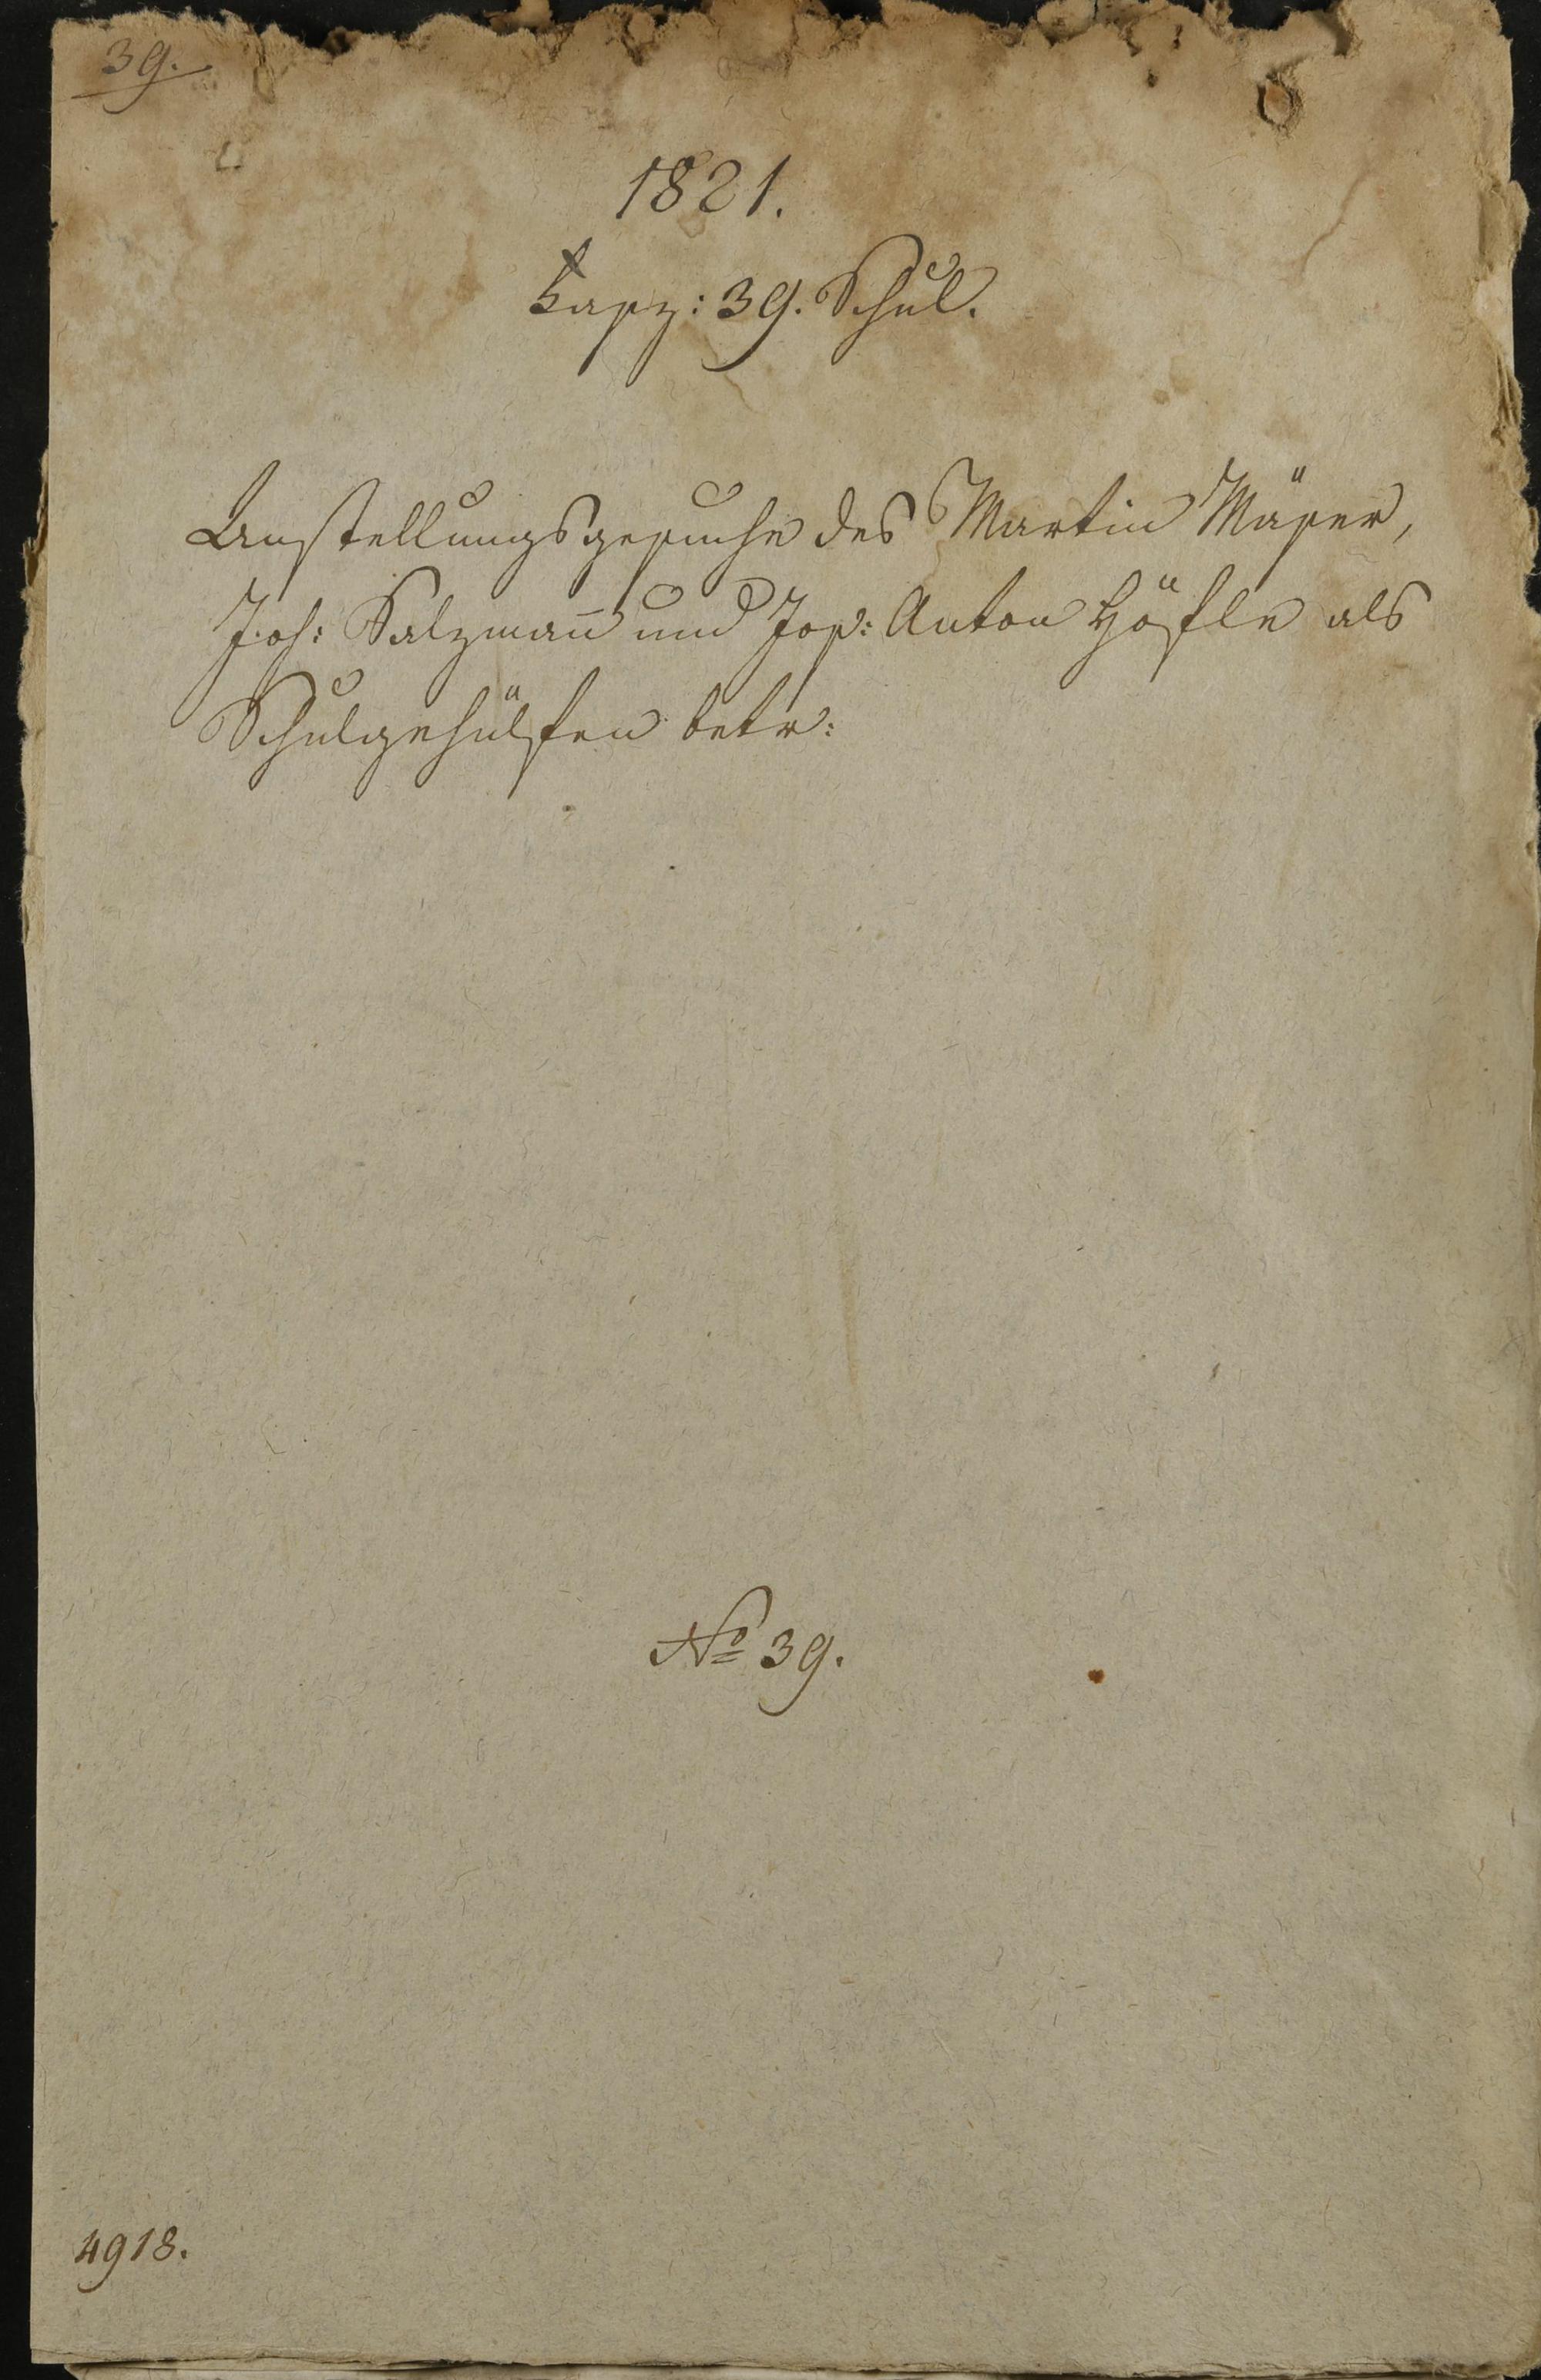 39.
1821.
Fasz: 39. Schul.
Anstellungsgesuche des Martin Mäser,
Joh: Salzmañ und Jos: Anton Höfle als
Schulgehülfen betr:
No 39.
4918.